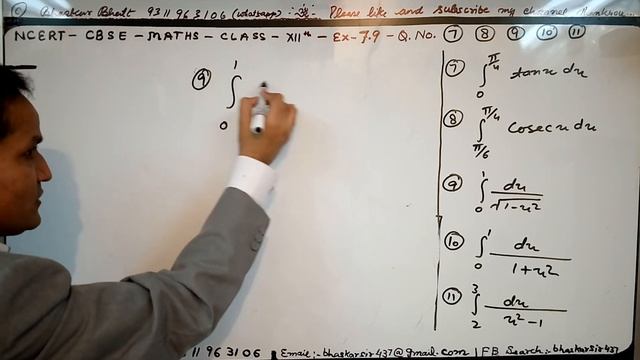 © Bhaskar Bhatt 9311963106 (whatsapp) Please like and subscribe my channel
NCERT - CBSE - MATHS - CLASS - XIIth - Ex-7.9 - Q. No. ⑦ ⑧ ⑨ ⑩ ⑪
⑨ ∫₀¹
⑦ ∫₀^π/4 tanx dx
⑧ ∫_π/6^π/4 cosecx dx
⑨ ∫₀¹ dx/√1-x²
⑩ ∫₀¹ dx/1+x²
⑪ ∫₂³ dx/x²-1
11 96 3106 Email:- bhaskarsir437@gmail.com | FB Search:- bhaskarsir437